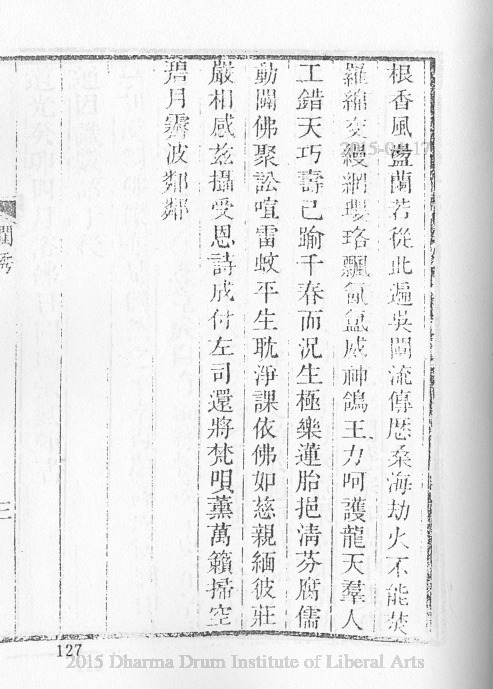 根香風盪蘭若從此遍吳閶流傳歷桑海劫火不能焚
羅綿交縵網瓔珞飄氤氳威神鴿王力呵護龍天羣人
工錯天巧壽已踰千春而況生極樂蓮胎挹清芬腐儒
動闢佛聚訟喧雷蚊平生耽淨課依佛如慈親緬彼莊
嚴相感茲攝受恩詩成付左司還將梵唄薰萬籟掃空
碧月霽波粼粼
三
127
2015 Dharma Drum Institute of Liberal Arts